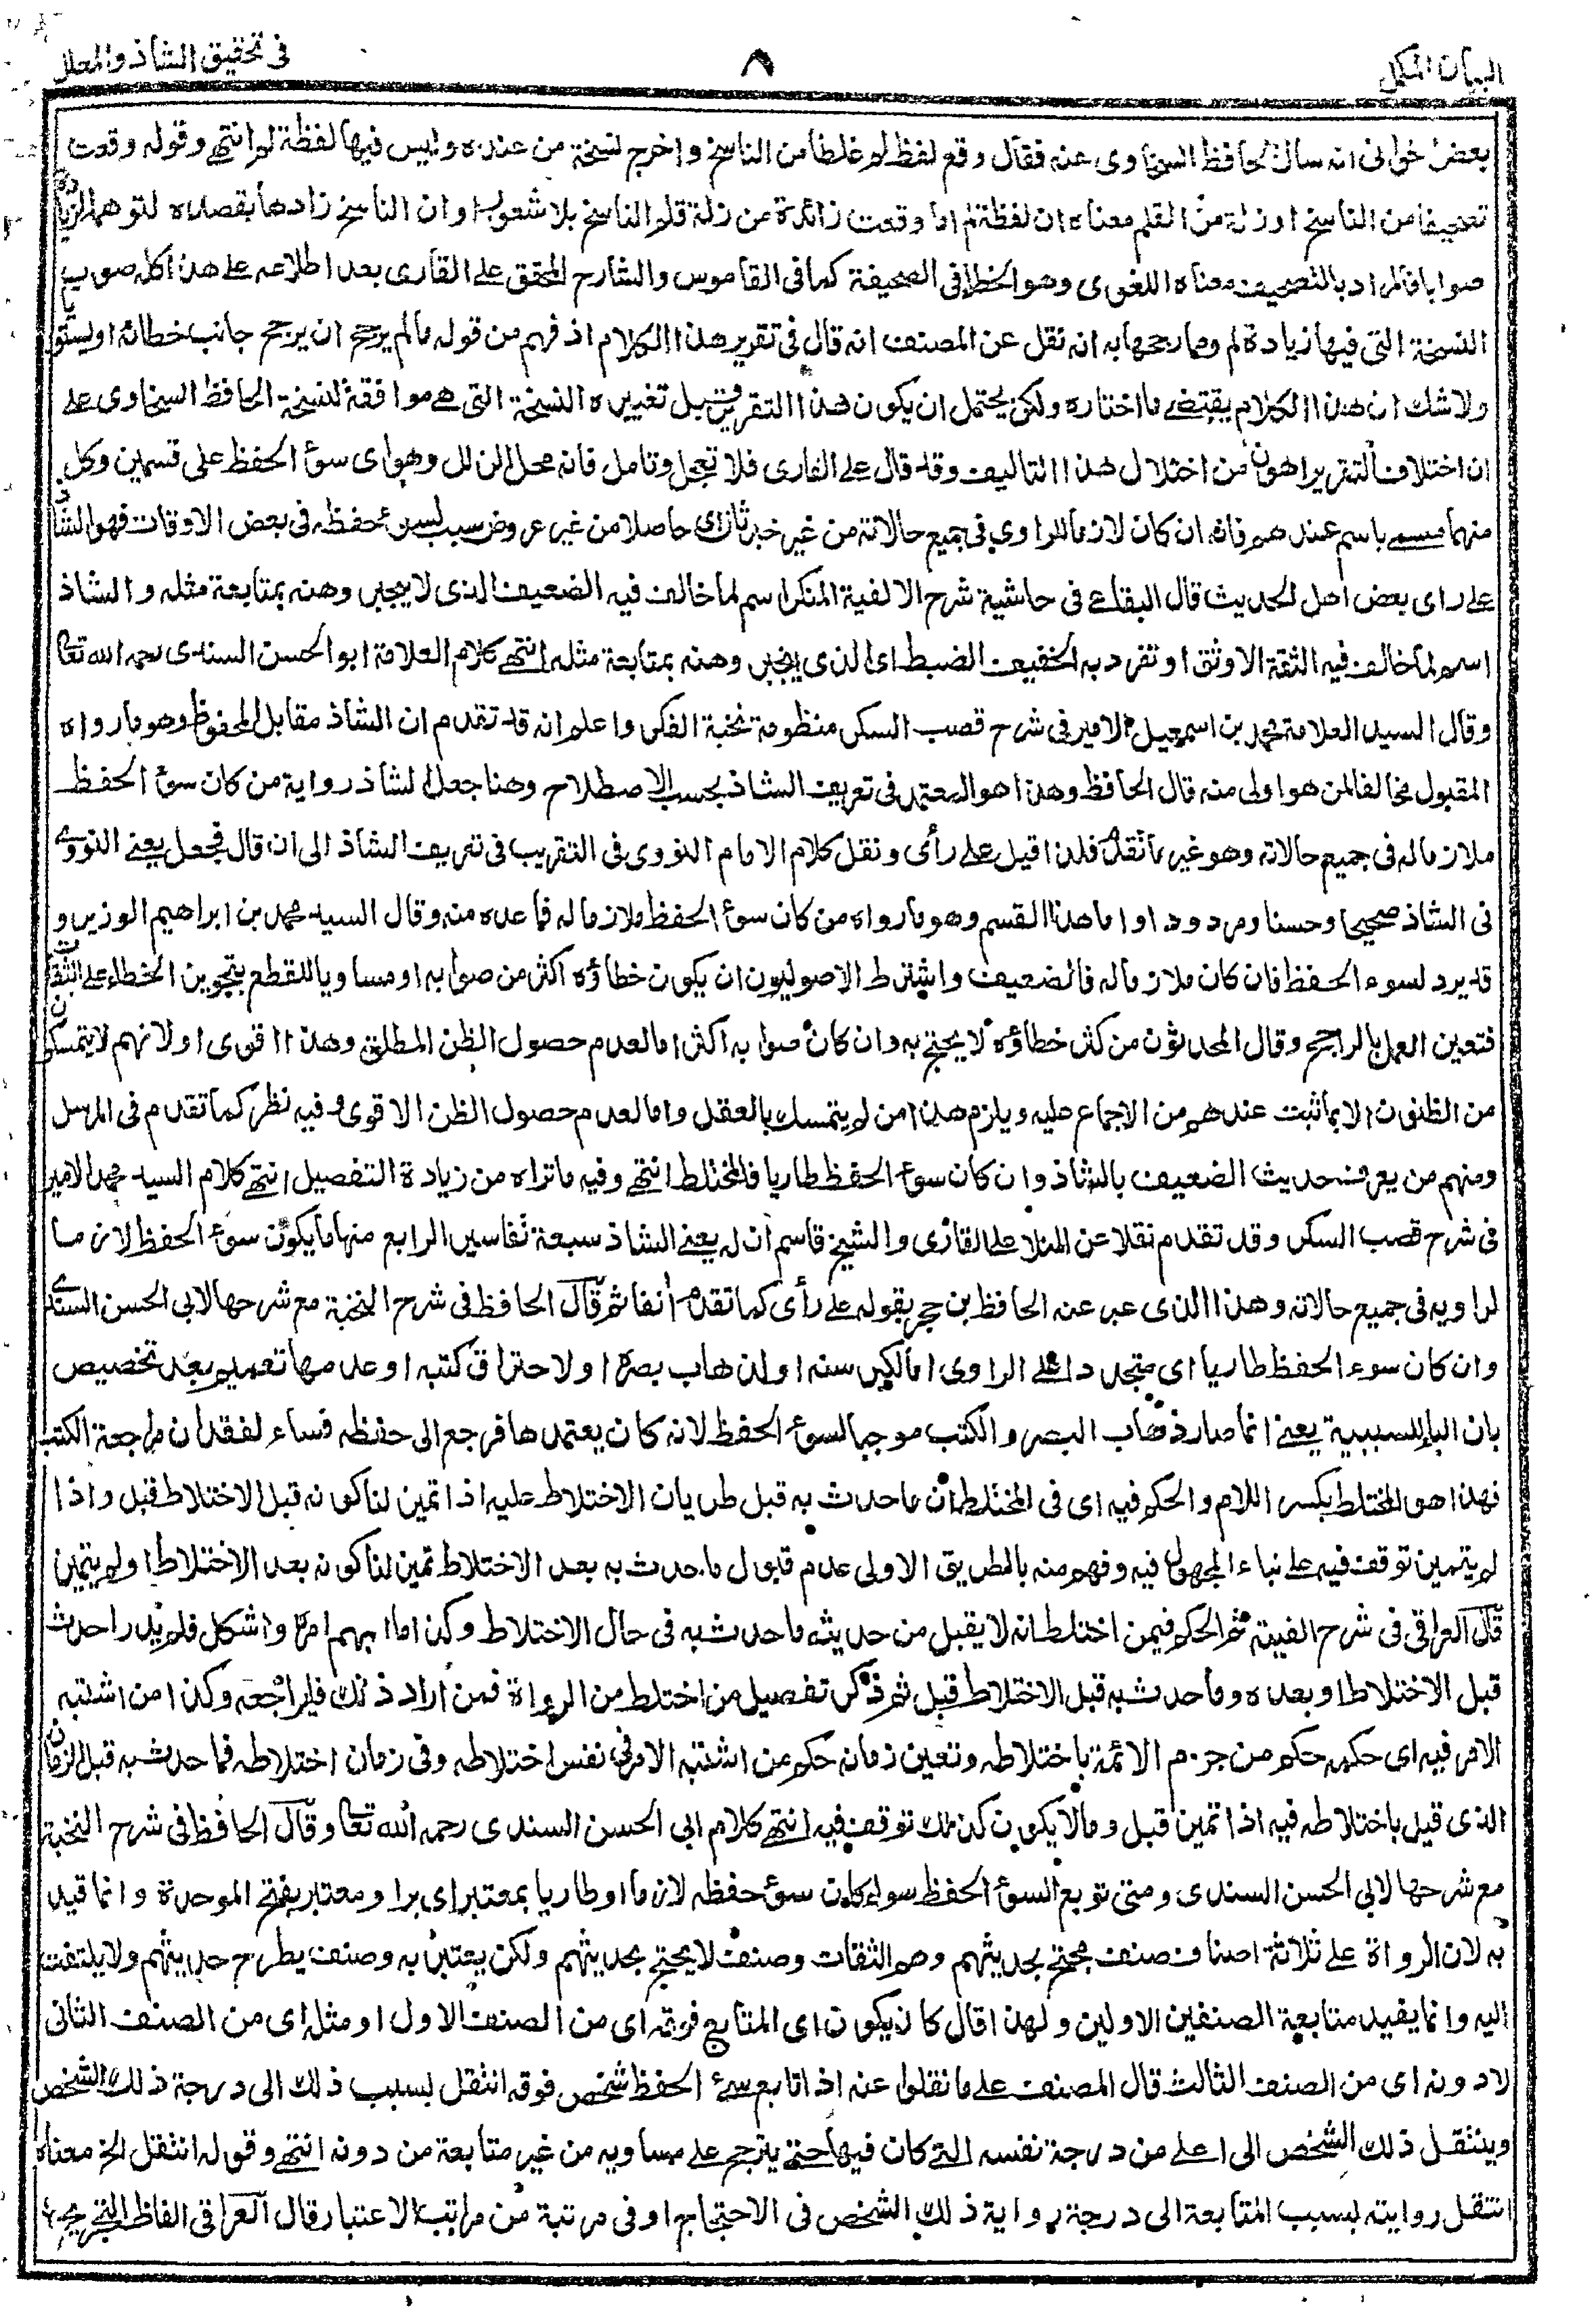 البيان المكمل
٨
فى تحقيق الشاذ والمعلل
بعض خوانى انه سأل الحافظ السخاوى عنه فقال وقع لفظ لم غلطا من الناسخ واخرج نسخة من عنده وليس فيها لفظة لم انتهى وقوله وقعت
تصحيفا من الناسخ او زلة من القلم معناه ان لفظة لم اما وقعت زائدة من زلة قلم الناسخ بلا شعور او ان الناسخ زادها بقصده لتوهم الزيادة
صوابا فالمراد بالتصحيف معناه اللغوى وهو الخطأ فى الصحيفة كما فى القاموس والشارح المحقق على القارى بعد اطلاعه على هذا كله صوب
النسخة التى فيها زيادة لم ومما رجحها به انه نقل عن المصنف انه قال فى تقرير هذا الكلام اذ فهم من قوله ما لم يرجح ان يرجح جانب خطائه او يستويا
ولا شك ان هذا الكلام يقتضے ما اختاره ولكن يحتمل ان يكون هذا التقرير قبل تغييره النسخة التى هے موافقة لنسخة الحافظ السخاوى على
ان اختلاف التقرير اهون من اختلال هذا التاليف وقد قال على القارى فلا تعجل وتامل فانه محل الزلل وهو اى سوء الحفظ على قسمين وكل
منهما مسمے باسم عندهم فانه ان كان لازما للراوى فى جميع حالاته من غير خبر ثان اى حاصلا من غير عروض سبب لسوء حفظه فى بعض الاوقات فهو الشاذ
على راى بعض اهل الحديث قال البقاعے فى حاشية شرح الالفية المنكر اسم لما خالف فيه الضعيف الذى لا يجبر وهنه بمتابعة مثله والشاذ
اسم لما خالف فيه الثقة الاوثق او تفرد به الخفيف الضبط اى الذى يجبر وهنه بمتابعة مثله انتهے كلام العلامة ابو الحسن السندى رحمه الله تعالى
وقال السيد العلامة محمد بن اسمعيل الامير فى شرح قصب السكر منظومة نخبة الفكر واعلم انه قد تقدم ان الشاذ مقابل المحفوظ وهو ما رواه
المقبول مخالفا لمن هو اولى منه قال الحافظ وهذا هو المعتمد فى تعريف الشاذ بحسب الاصطلاح وهنا جعل الشاذ رواية من كان سوء الحفظ
ملازما له فى جميع حالاته وهو غير ما تقدم فلذا قيل على رأى ونقل كلام الامام النووى فى التقريب فى تعريف الشاذ الى ان قال فجعل يعنے النووے
فى الشاذ صحيحا وحسنا ومردودا واما هذا القسم وهو ما رواه من كان سوء الحفظ ملازما له فما عده منه وقال السيد محمد بن ابراهيم الوزير و
قد يرد لسوء الحفظ فان كان ملازما له فالضعيف واشترط الاصوليون ان يكون خطاؤه اكثر من صوابه او مساويا للقطع بتجويز الخطاء على الثقات
فتعين العمل بالراجح وقال المحدثون من كثر خطاؤه لا يحتج به وان كان صوابه اكثر اما لعدم حصول الظن المطلق وهذا اقوى او لانهم لا يتمسكون
من الظنون الا بما ثبت عندهم من الاجماع عليه ويلزم هذا من لم يتمسك بالعقل واما لعدم حصول الظن الاقوى وفيه نظر كما تقدم فى المرسل
ومنهم من يعرف حديث الضعيف بالشاذ وان كان سوء الحفظ طاريا فالمختلط انتهے وفيه ما تراه من زيادة التفصيل انتهے كلام السيد محمد الامير
فى شرح قصب السكر وقد تقدم نقلا عن الملا على القارى والشيخ قاسم ان له يعنے الشاذ سبعة تفاسير الرابع منها ما يكون سوء الحفظ لازما
لراويه فى جميع حالاته وهذا الذى عبر عنه الحافظ بن حجر بقوله على رأى كما تقدم آنفا ثم قال الحافظ فى شرح النخبة مع شرحها لابى الحسن السندے
وان كان سوء الحفظ طاريا اى متجددا على الراوى اما لكبر سنه او لذهاب بصره او لاحتراق كتبه او عدمها تعميم بعد تخصيص
بان الباء للسببية يعنے انما صار ذهاب البصر والكتب موجبا لسوء الحفظ لانه كان يعتمدها فرجع الى حفظه فساء لفقدان مراجعة الكتب
فهذا هو المختلط بكسر اللام والحكم فيه اى فى المختلط ان ما حدث به قبل طريان الاختلاط عليه اذا تميز لنا كونه قبل الاختلاط قبل واذا
لم يتميز توقف فيه على بناء المجهول فيه وفهم منه بالطريق الاولى عدم قبول ما حدث به بعد الاختلاط تميز لنا كونه بعد الاختلاط او لم يتميز
قال العراقى فى شرح الفيته ثم الحكم فيمن اختلط انه لا يقبل من حديثه ما حدث به فى حال الاختلاط وكذا ما ابهم امره واشكل فلم يدر احدث
قبل الاختلاط او بعده وما حدث به قبل الاختلاط قبل ثم ذكر تفصيل من اختلط من الرواة فمن اراد ذلك فليراجعه وكذا من اشتبه
الامر فيه اى حكمه حكم من جزم الائمة باختلاطه وتعين زمانه حكم من اشتبه الامر فى نفس اختلاطه وفى زمان اختلاطه فما حدث به قبل الزمان
الذى قيل باختلاطه فيه اذا تميز قبل وما لا يكون كذلك توقف فيه انتهے كلام ابى الحسن السندى رحمه الله تعالى وقال الحافظ فى شرح النخبة
مع شرحها لابى الحسن السندى ومتى توبع السوء الحفظ سواء كان سوء حفظه لازما او طاريا بمعتبر اى برا ومعتبر بفتح الموحدة وانما قيد
به لان الرواة على ثلاثة اصناف صنف يحتج بحديثهم وهم الثقات وصنف لا يحتج بحديثهم ولكن يعتبر به وصنف يطرح حديثهم ولا يلتفت
اليه وانما يفيد متابعة الصنفين الاولين ولهذا قال كان يكون اى المتابع فوقه اى من الصنف الاول او مثله اى من الصنف الثانى
لا دونه اى من الصنف الثالث قال المصنف على ما نقلوا عنه اذا تابع سىء الحفظ شخص فوقه انتقل بسبب ذلك الى درجة ذلك الشخص
وينتقل ذلك الشخص الى اعلى من درجة نفسه التے كان فيها حتے يترجح على مساويه من غير متابعة من دونه انتهے وقوله انتقل الخ معناه
انتقل روايته بسبب المتابعة الى درجة رواية ذلك الشخص فى الاحتجاج او فى مرتبة من مراتب الاعتبار قال العراقى الفاظ التجريح